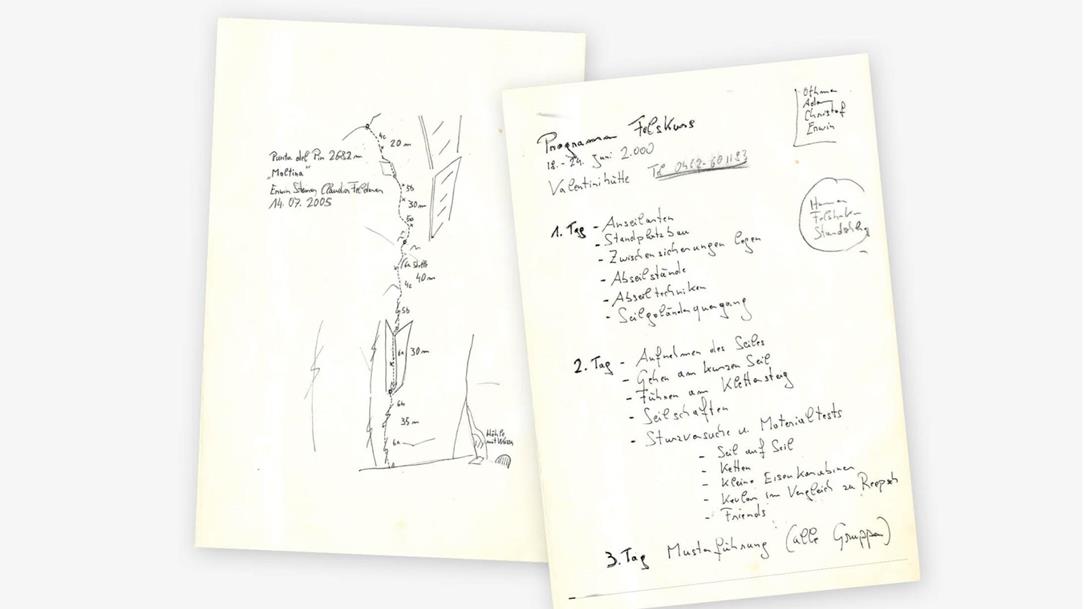 4c
20 m
Punta del Pin 2682 m
"Moltina"
Erwin Steiner Claudia Feldner
14. 07. 2005
5b
30 m
5a
6a
40 m
4c
5b
6a
30 m
6b
35 m
6a
Höhle
Othmar
Adam
Christof
Erwin
Programm Felskurs
18.-24. Juni 2.000
Valentinihütte
Tel 0462-601183
Hammer
Felshaken
1. Tag - Anseilarten
- Standplatzbau
- Zwischensicherungen legen
- Abseilstände
- Abseiltechniken
- Seilgeländerquergang
2. Tag - Aufnehmen des Seiles
- Gehen am kurzen Seil
- Führen am Klettersteig
- Seilschaften
- Sturzversuche u. Materialtests
- Seil auf Seil
- Ketten
- Kleine Eisenkarabiner
- Kevlar im Vergleich zu Reepsch
- Friends
3. Tag Musterführung (alle Gruppen)